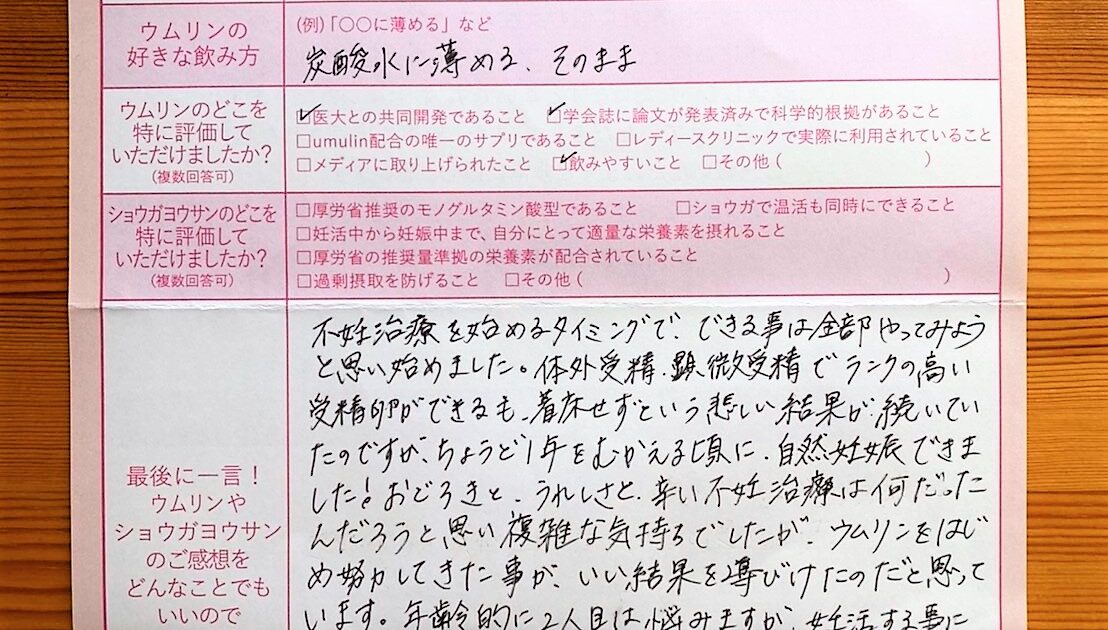 ウムリンの
好きな飲み方
(例)「〇〇に薄める」など
炭酸水に薄める、そのまま
ウムリンのどこを
特に評価して
いただけましたか?
(複数回答可)
☑医大との共同開発であること ☑学会誌に論文が発表済みで科学的根拠があること
□umulin配合の唯一のサプリであること □レディースクリニックで実際に利用されていること
□メディアに取り上げられたこと ☑飲みやすいこと □その他( )
ショウガヨウサンのどこを
特に評価して
いただけましたか?
(複数回答可)
□厚労省推奨のモノグルタミン酸型であること □ショウガで温活も同時にできること
□妊活中から妊娠中まで、自分にとって適量な栄養素を摂れること
□厚労省の推奨量準拠の栄養素が配合されていること
□過剰摂取を防げること □その他( )
最後に一言!
ウムリンや
ショウガヨウサン
のご感想を
どんなことでも
いいので
不妊治療を始めるタイミングで、できる事は全部やってみよう
と思い始めました。体外受精、顕微受精でランクの高い
受精卵ができるも、着床せずという悲しい結果が続いてい
たのですが、ちょうど1年をむかえる頃に、自然妊娠できま
した!おどろきと、うれしさと、辛い不妊治療は何だった
んだろうと思い複雑な気持ちでしたが、ウムリンをはじ
め努力してきた事が、いい結果を導びけたのだと思って
います。年齢的に2人目は悩みますが、妊活する事に